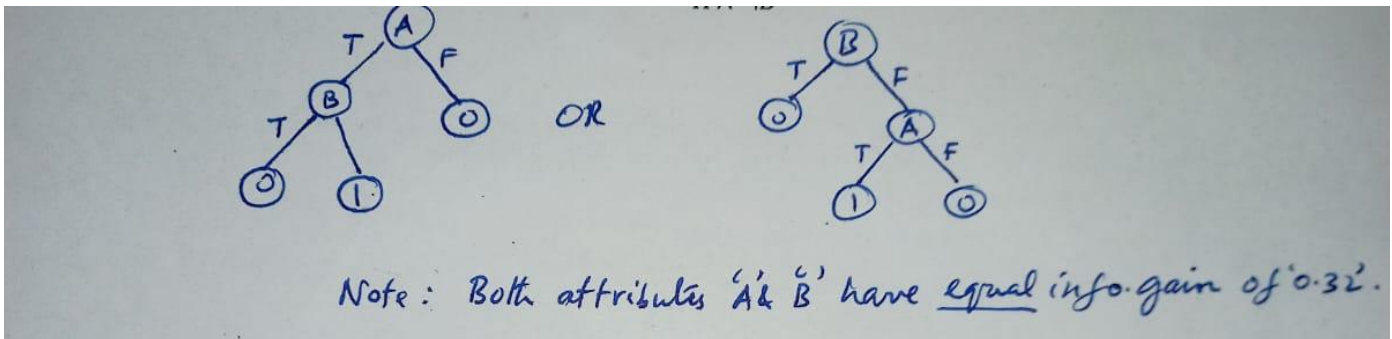 A
T
F
B
O
T
O
1
OR
B
T
F
O
A
T
F
1
O
Note : Both attributes 'A' & 'B' have equal info. gain of '0.32'.